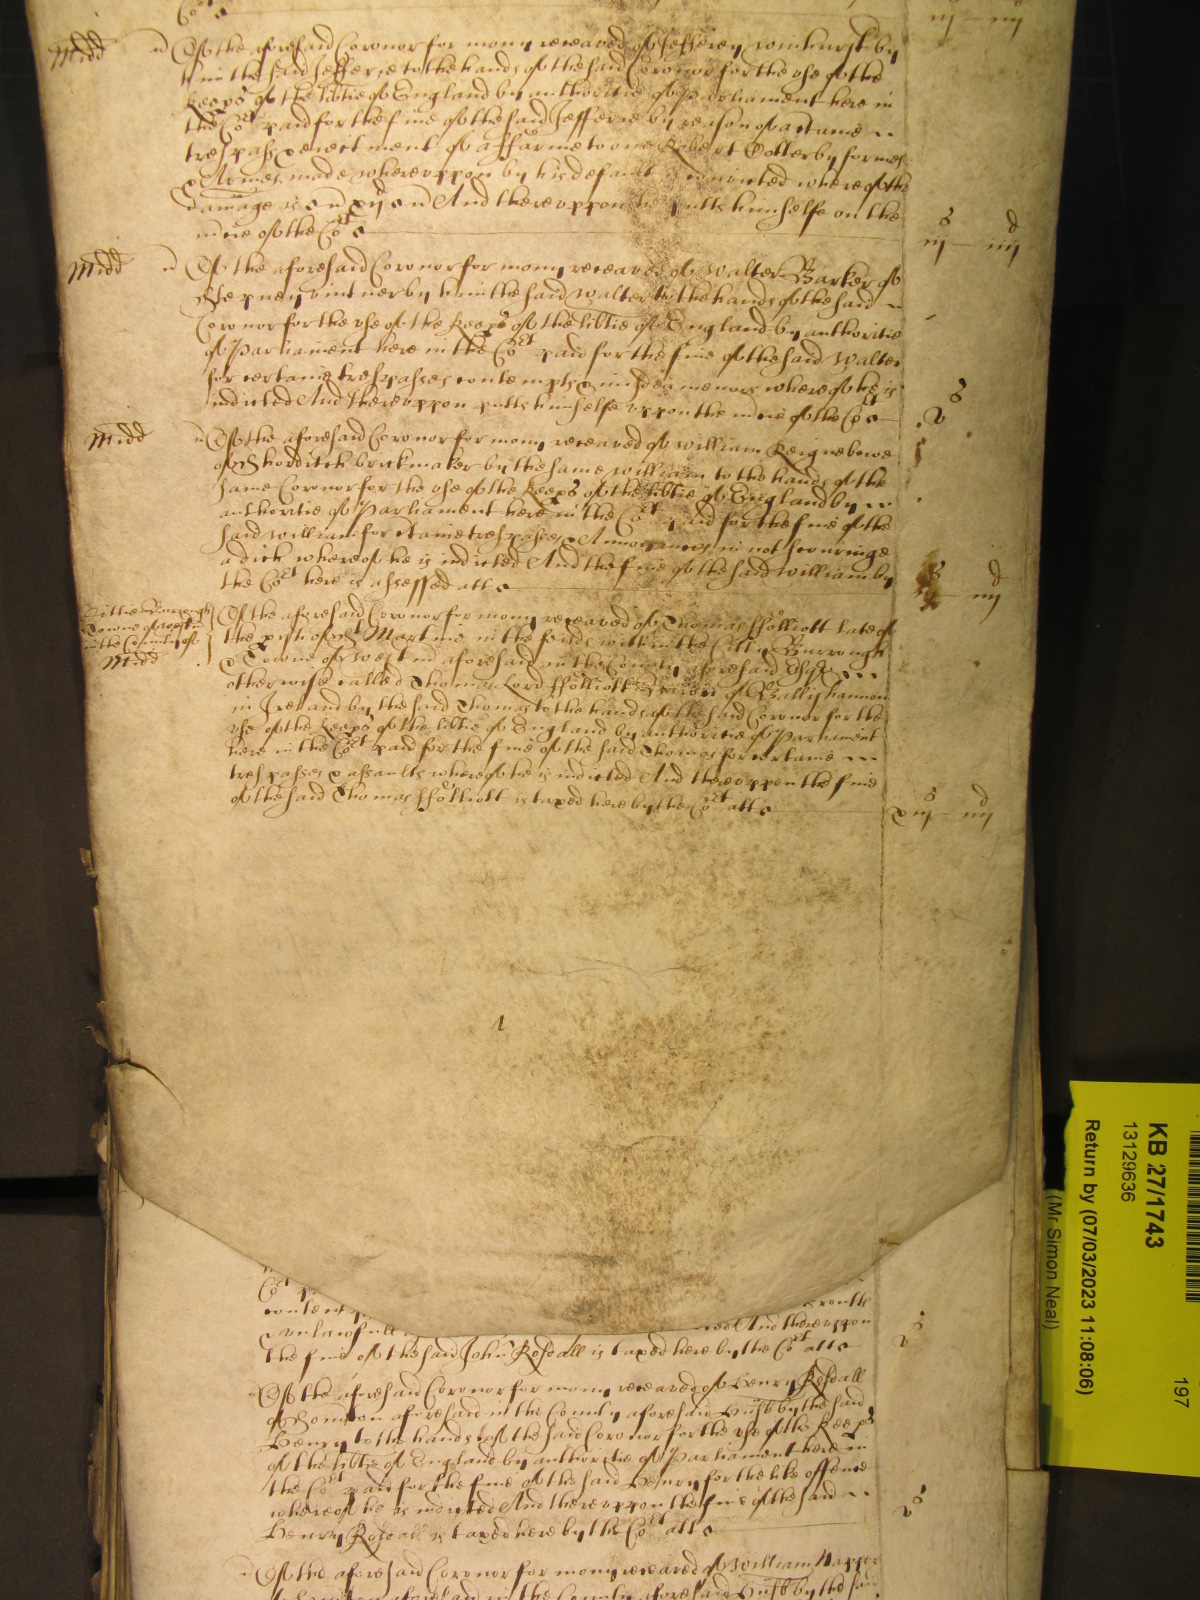 Co^rt
iij — iiij
Midd Of the aforesaid Coronor for mony receaved of Jefferey by
him the said Jefferie to the hands of the said Coronor for the use of the
Keep^s of the lib^tie of England by authoritie of Parliament here in
the Co^rt paid for the fine of the said Jefferie by reason of a c^rtaine
trespass & eiectment of a ffarme to one Robert Sotterby for mes
& Armes made whereuppon by his default is convicted whereof the
damage is And thereuppon he putts himselfe on the
m^rcie of the Co^rt
s d
iij — iiij
Midd Of the aforesaid Coronor for mony receaved of Walter Barker of
Stepney vintner by him the said Walter to the hands of the said
Coronor for the use of the Keep^s of the lib^tie of England by authoritie
of Parliament here in the Co^rt paid for the fine of the said Walter
for certaine trespasses contempts & misdemenors whereof he is
indicted And thereuppon putts himselfe uppon the m^rcie of the Co^rt
s
v
Midd Of the aforesaid Coronor for mony receaved of William Reignebowe
of Shorditch brickmaker by the same William to the hands of the
same Coronor for the use of the Keep^s of the lib^tie of England by
authoritie of Parliament here in the Co^rt paid for the fine of the
said William for c^rtaine trespasses & Annoyances in not scouringe
a dich whereof he is indicted And the fine of the said William by
the Co^rt here is assessed att
s d
iiij
Cittie Burrough
Towne of Westm
in the County of
Midd
Of the aforesaid Coronor for mony receaved of Thomas ffolliott late of
the p^ish of S^t Martins in the feilds within the Cittie Burrough
& Towne of Westm aforesaid in the County aforesaid Esq^r
otherwise called Thomas Lord ffolliott Baron of Ballishannon
in Ireland by the said Thomas to the hands of the said Coronor for the
use of the Keep^s of the lib^tie of England by authoritie of Parliament
here in the Co^rt paid for the fine of the said Thomas for certaine
trespasses & assaults whereof he is indicted And thereuppon the fine
of the said Thomas ffolliott is taxed here by the Co^rt att
s d
xiij — iiij
1
Co^rt
contempt
And thereuppon
the fine of the said John Rosdall is taxed here by the Co^rt att
s
v
Of the aforesaid Coronor for mony receaved of Henry Rosdall
of aforesaid in the County aforesaid Husb by the said
Henry to the hands of the said Coronor for the use of the Keep^s
of the lib^tie of England by authoritie of Parliament here in
the Co^rt paid for the fine of the said Henry for the like offence
whereof he is indicted And thereuppon the fine of the said
Henry Rosdall is taxed here by the Co^rt att
s
v
Of the aforesaid Coronor for mony receaved of William
aforesaid in the County aforesaid Husb by the said
KB 27/1743
13129636
Return by (07/03/2023 11:08:06)
(Mr Simon Neal)
197